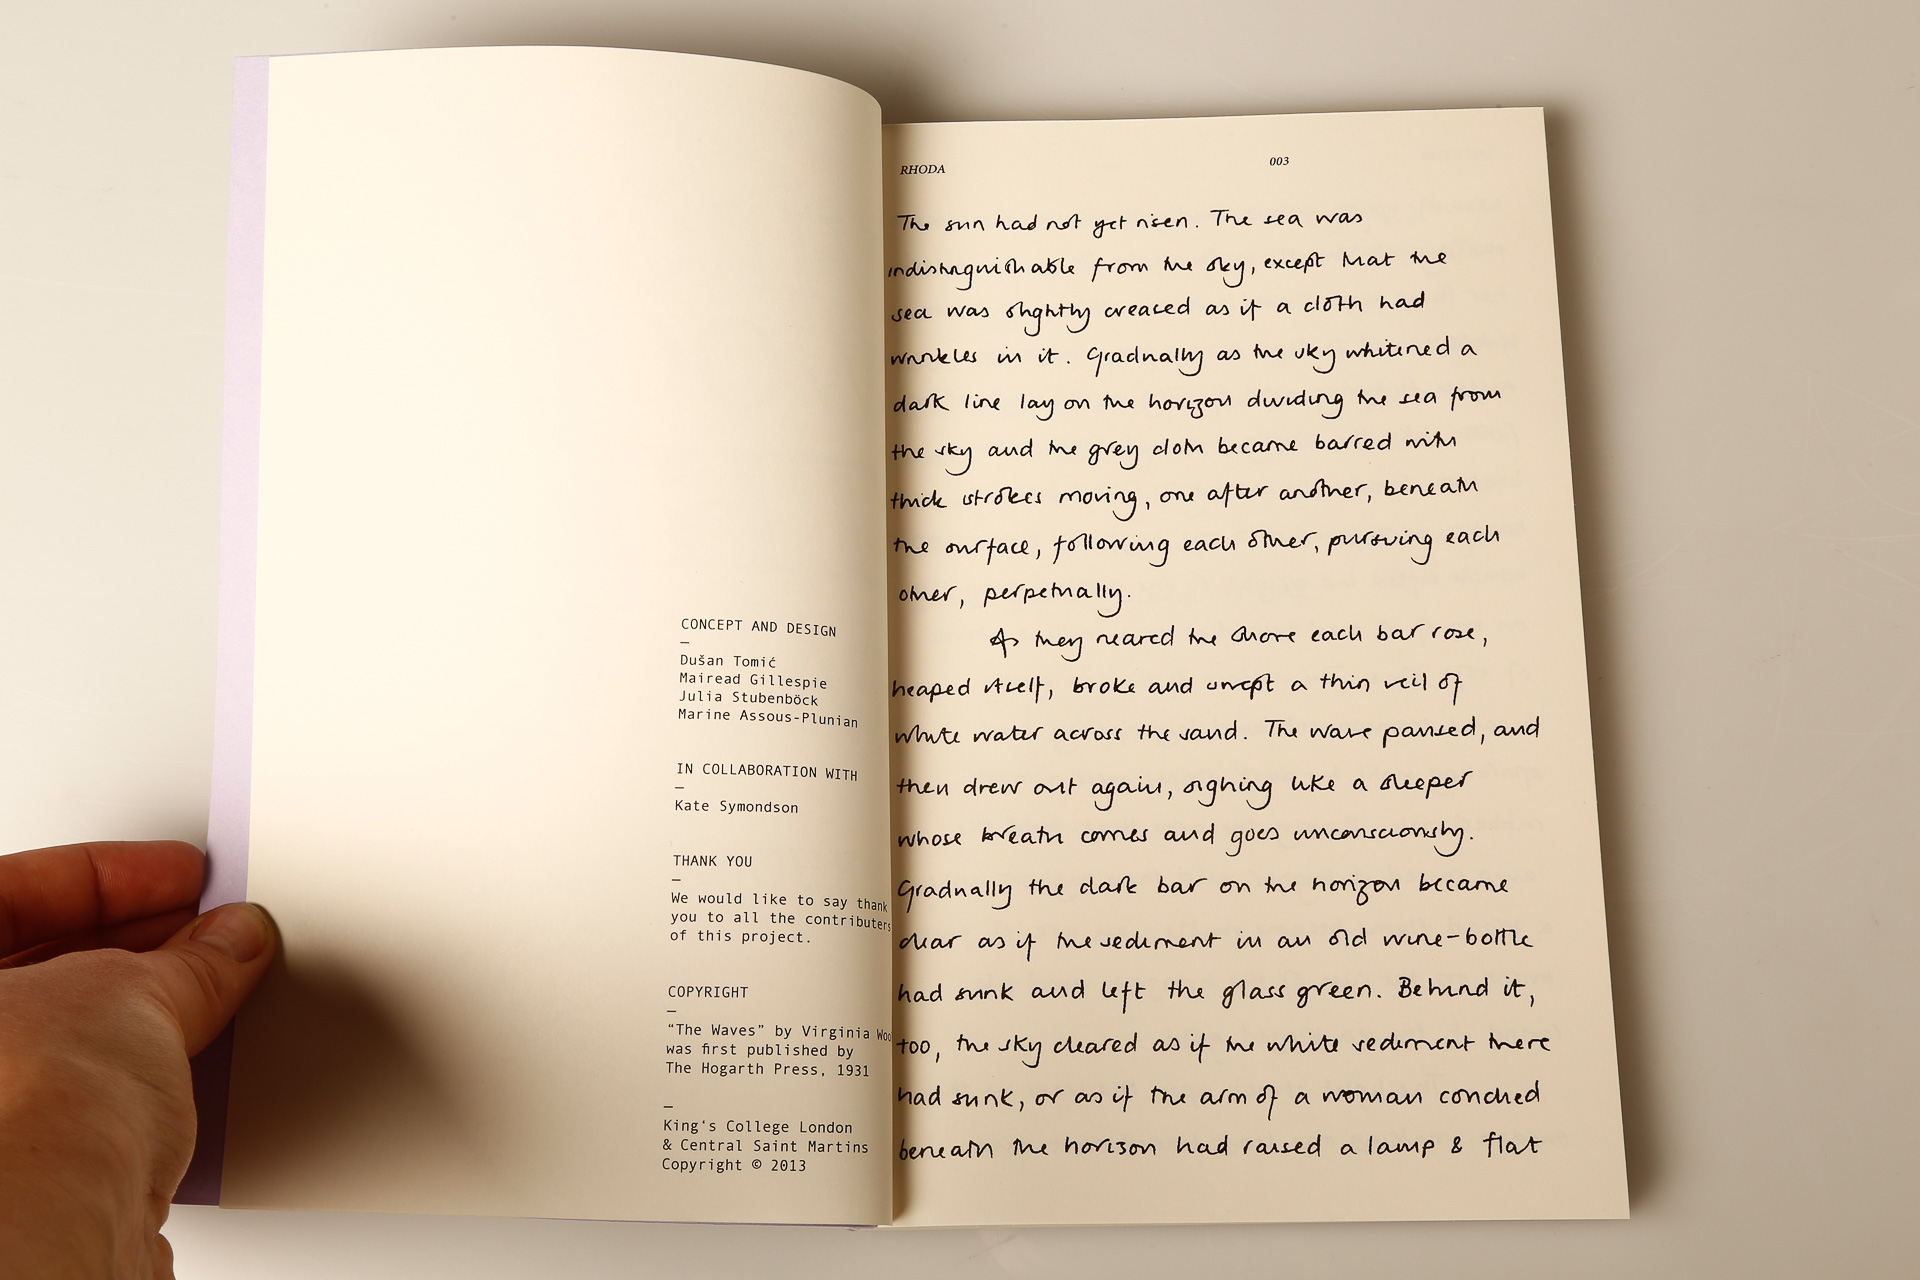 CONCEPT AND DESIGN
—
Dušan Tomić
Mairead Gillespie
Julia Stubenböck
Marine Assous-Plunian
IN COLLABORATION WITH
—
Kate Symondson
THANK YOU
—
We would like to say thank
you to all the contributers
of this project.
COPYRIGHT
—
“The Waves” by Virginia Woo
was first published by
The Hogarth Press, 1931
—
King‘s College London
& Central Saint Martins
Copyright © 2013
RHODA 003
The sun had not yet risen. The sea was
indistinguishable from the sky, except that the
sea was slightly creased as if a cloth had
wrinkles in it. Gradually as the sky whitened a
dark line lay on the horizon dividing the sea from
the sky and the grey cloth became barred with
thick strokes moving, one after another, beneath
the surface, following each other, pursuing each
other, perpetually.
As they neared the shore each bar rose,
heaped itself, broke and swept a thin veil of
white water across the sand. The wave paused, and
then drew out again, sighing like a sleeper
whose breath comes and goes unconsciously.
Gradually the dark bar on the horizon became
clear as if the sediment in an old wine-bottle
had sunk and left the glass green. Behind it,
too, the sky cleared as if the white sediment there
had sunk, or as if the arm of a woman couched
beneath the horizon had raised a lamp & flat